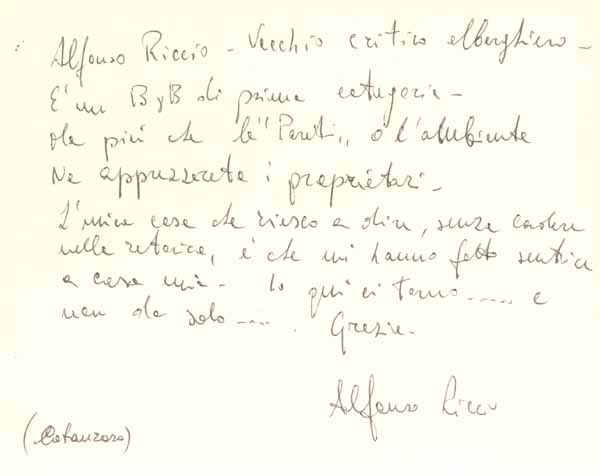 Alfonso Riccio - Vecchio critico alberghiero -
E' un B y B di prima categoria -
ma più che le " Pareti,, o l'ambiente
Ne apprezzerete i proprietari -
L'unica cosa che riesco a dire, senza cadere
nella retorica, è che mi hanno fatto sentire
a casa mia - Io qui ci torno ..... e
non da solo .... . Grazie.
Alfonso Riccio
(Catanzaro)